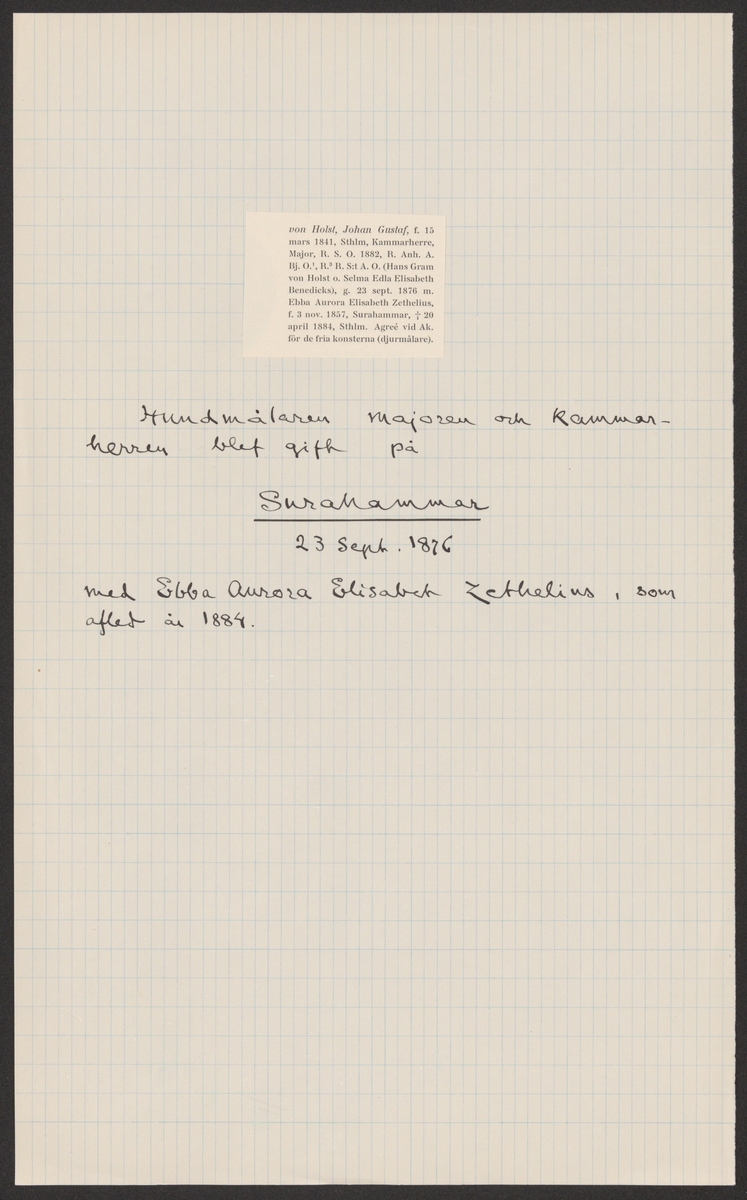 von Holst, Johan Gustaf, f. 15
mars 1841, Sthlm, Kammarherre,
Major, R. S. O. 1882, R. Anh. A.
Bj. O.¹, R.² R. S:t A. O. (Hans Gram
von Holst o. Selma Edla Elisabeth
Benedicks), g. 23 sept. 1876 m.
Ebba Aurora Elisabeth Zethelius,
f. 3 nov. 1857, Surahammar, † 20
april 1884, Sthlm. Agreé vid Ak.
för de fria konsterna (djurmålare).
Hundmålaren majoren och kammar-
herren blef gift på
Surahammar
23 Sept. 1876
med Ebba Aurora Elisabet Zethelius, som
afled år 1884.